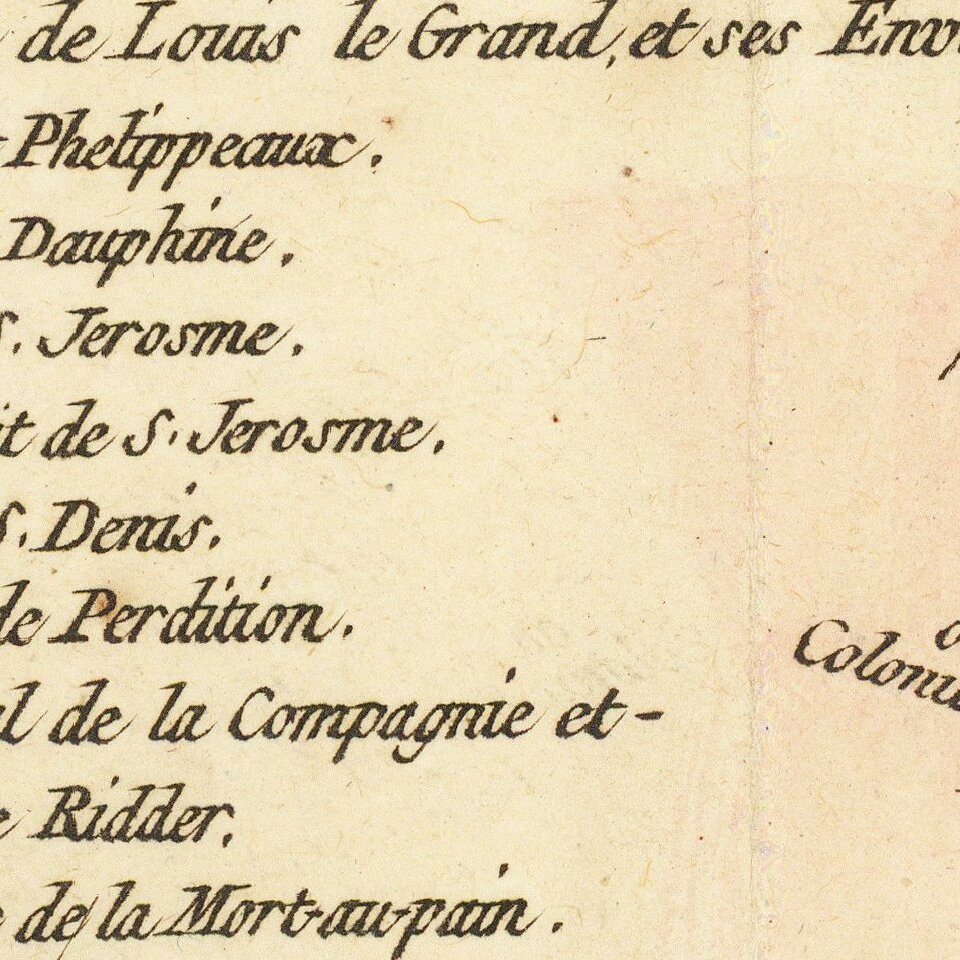 de Louis le Grand, et ses
Phelippeaux.
Dauphine.
S. Jerosme.
de S. Jerosme.
S. Denis.
de Perdition.
de la Compagnie et-
Ridder.
de la Mort-au-pain.